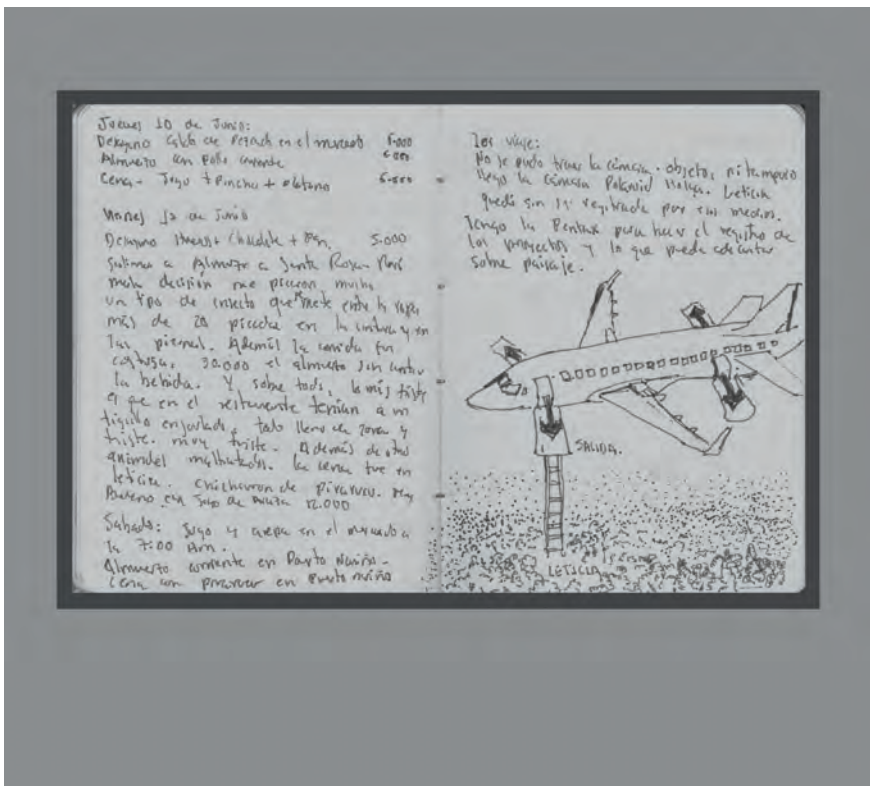 Jueves 10 de Junio:
Desayuno Caldo de Pescado en el mercado 5.000
Almuerzo con Pollo corriente 6.000
Cena - Jugo + Pincho + platano 6.000
12 de Junio
Desayuno Huevos + Chocolate + Pan. 5.000
Salimos a Almorzar a Santa Rosa - Perú
mala decisión me picaron mucho
un tipo de insecto que se mete entre la ropa
más de 20 picadas en la cintura y en
las piernas. Además la comida fue
costosa, 30.000 el almuerzo sin contar
la bebida. Y sobre todo, lo más triste
es que en el restaurante tenían a un
tigrillo enjaulado, todo lleno de y
triste. muy triste. Además de otros
animales maltratados. La cena fue en
Leticia. chicharron de pirarucu. muy
Bueno con Jugo de 12.000
Sabado: Jugo y arepa en el mercado a
la 7:00 Am.
Almuerzo corriente en Puerto Nariño -
Cena con pirarucu en Puerto Nariño
viaje:
No se pudo traer la cámara - objeto, ni tampoco
llego la cámara Polaroid Holga. Leticia
quedó sin ser registrada por esos medios.
Tengo la Pentax para hacer el registro de
los proyectos y lo que pueda adelantar
sobre paisaje.
SALIDA.
LETICIA